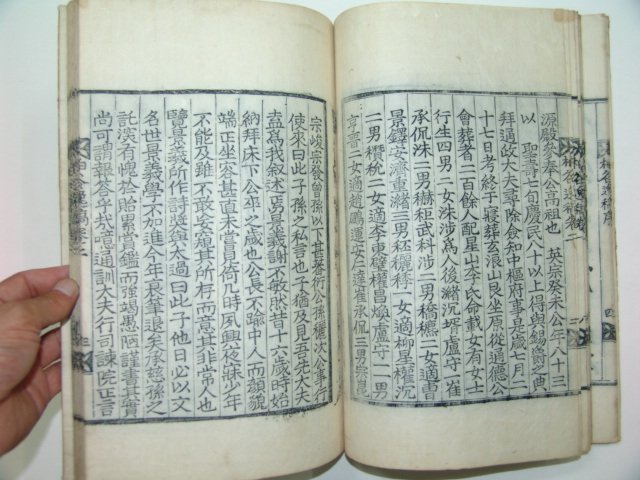 源殿參奉公高祖也 英宗癸未公年八十三
以 聖壽七旬慶民八十以上得與錫爵之典
拜通政大夫尋除僉知中樞府事是歲七月二
十七日考終于寢葬玄浪山艮坐原從遁德公
會葬者二百餘人配星山李氏命載女有女士
行生四男二女洙涉爲人後潝沉壻盧守 崔
承侃洙二男㰇秬武科涉二男橋櫶二女適曺
景鐸安濟重潝三男秠穲移 女適柳星權沉
二男穳統二女適李東壁權昌煥盧守 一男
亨晋二女適趙鵬運安 達崔承侃三男宗冕
宗峻宗發曾孫以下甚蕃衍公孫穳次余事行
使來曰此子孫之私言也子猶及見吾先大夫
盍爲我叙述焉景羲謝不敏狀昔十六歲時始
納拜床下公年之歲也公長不踰中人而顔貌
端正坐容甚直未嘗貟倚几時夙興夜寐少年
不能及雖不敢妄窺其所存而意其非常人也
覽景羲所作詩奬與太過曰此子他日必以文
名世景羲學不加進今年衰筆退矣承慈孫之
託深有愧於貽累賞鑑而强竭愚陋謹書其實
尚可謂報答乎我噫通訓大夫行司諫院正言